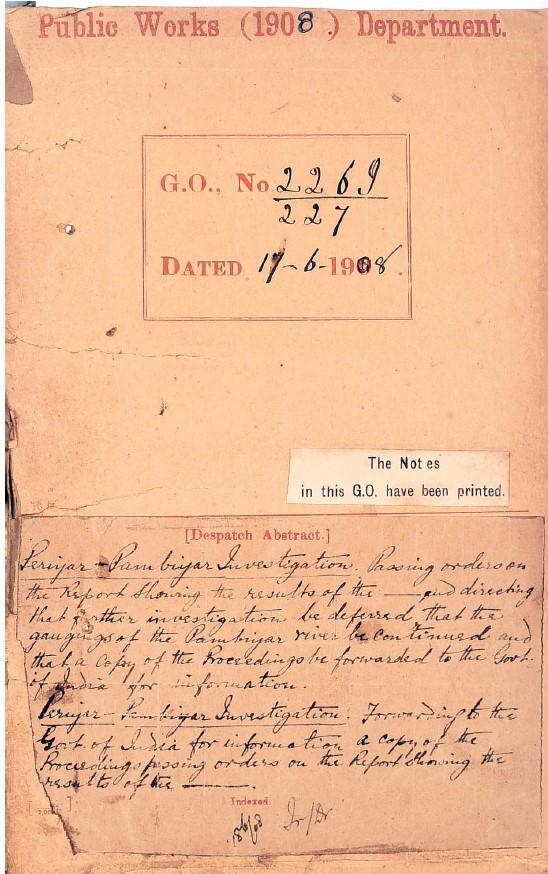 Public Works (1908) Department.
G.O., No 2269
227
DATED 17-6-1908.
The Notes
in this G.O. have been printed.
[Despatch Abstract.]
Periyar - Pambiyar Investigation. Passing orders on
the Report showing the results of the —— and directing
that further investigation be deferred that the
gaugings of the Pambiyar river be continued and
that a Copy of the Proceedings be forwarded to the Govt.
of India for information.
Periyar - Pambiyar Investigation. Forwarding to the
Govt. of India for information a copy of the
Proceedings passing orders on the Report showing the
results of the ——.
Indexed